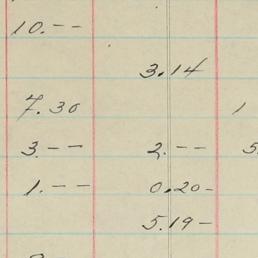 10.--
3.14
7.30 1
3.-- 2.-- 5.
1.-- 0.20-
5.19-